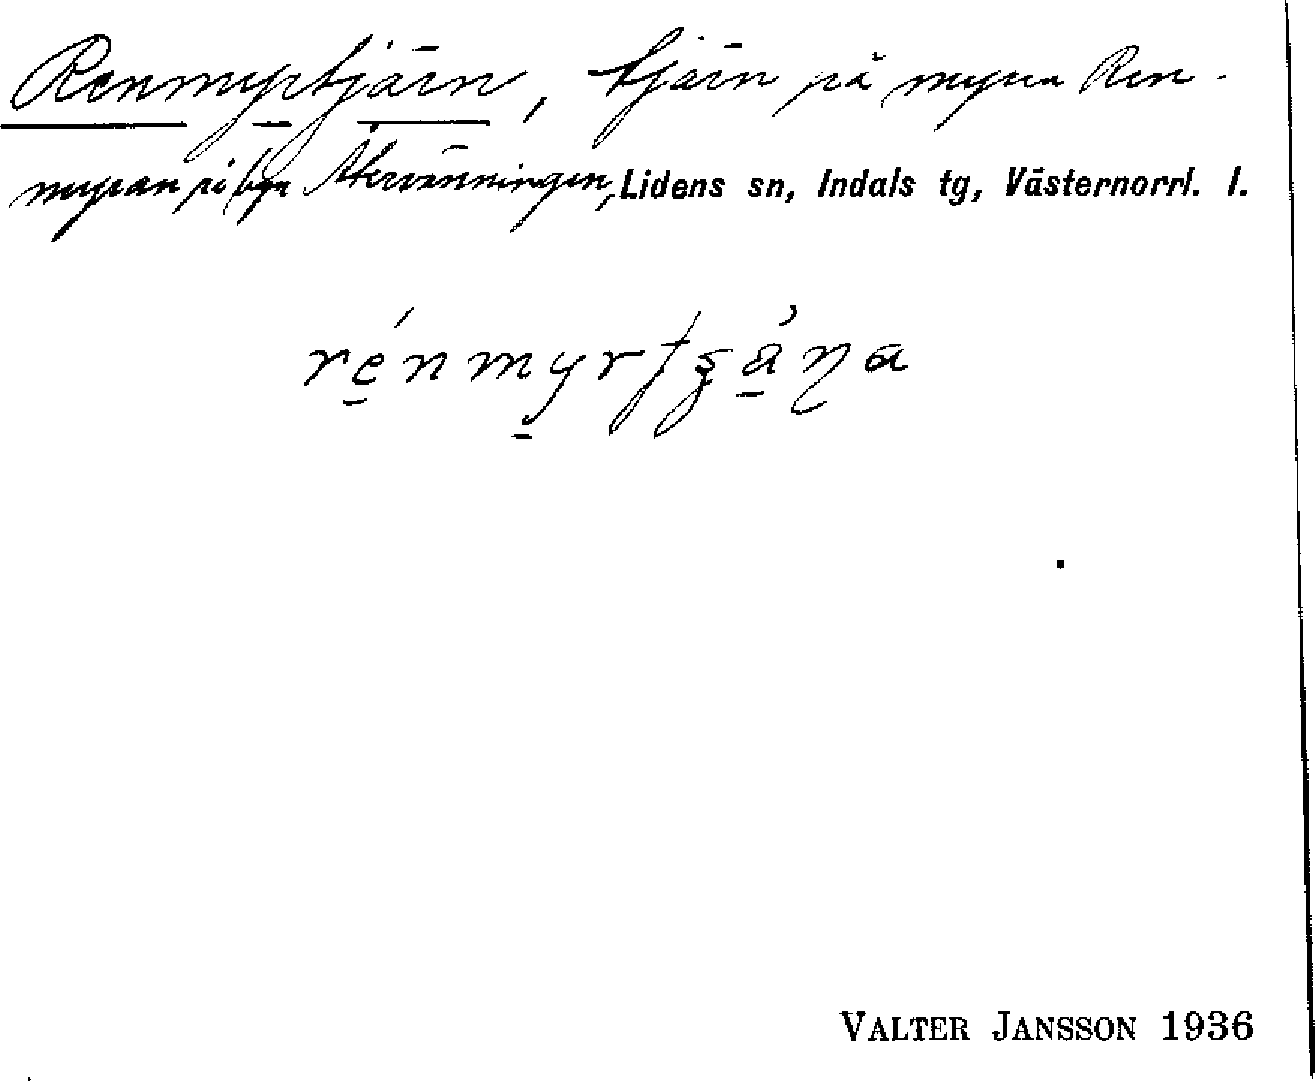 Renmyrtjärn, tjärn på myren Ren-
myran på byn Återvänningen, Lidens sn, Indals tg, Västernorrl. l.
VALTER JANSSON 1936